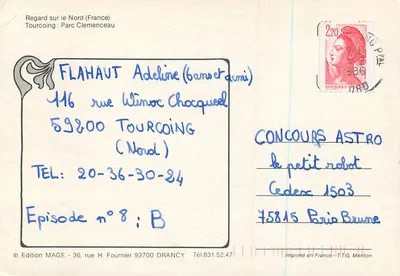 Regard sur le Nord (France)
Tourcoing : Parc Clemenceau
2,20
FLAHAUT Adeline (6 ans et demi)
116 rue Winoc Chocqueel
59200 TOURCOING
(Nord)
TEL: 20-36-30-24
Episode n° 8 : B
CONCOURS ASTRO
le petit robot
Cedex 1503
75815 Paris Brune
© Edition MAGE - 36, rue H. Fournier 93700 DRANCY Tél.831.52.47
Imprimé en France - T.T.G. Menton